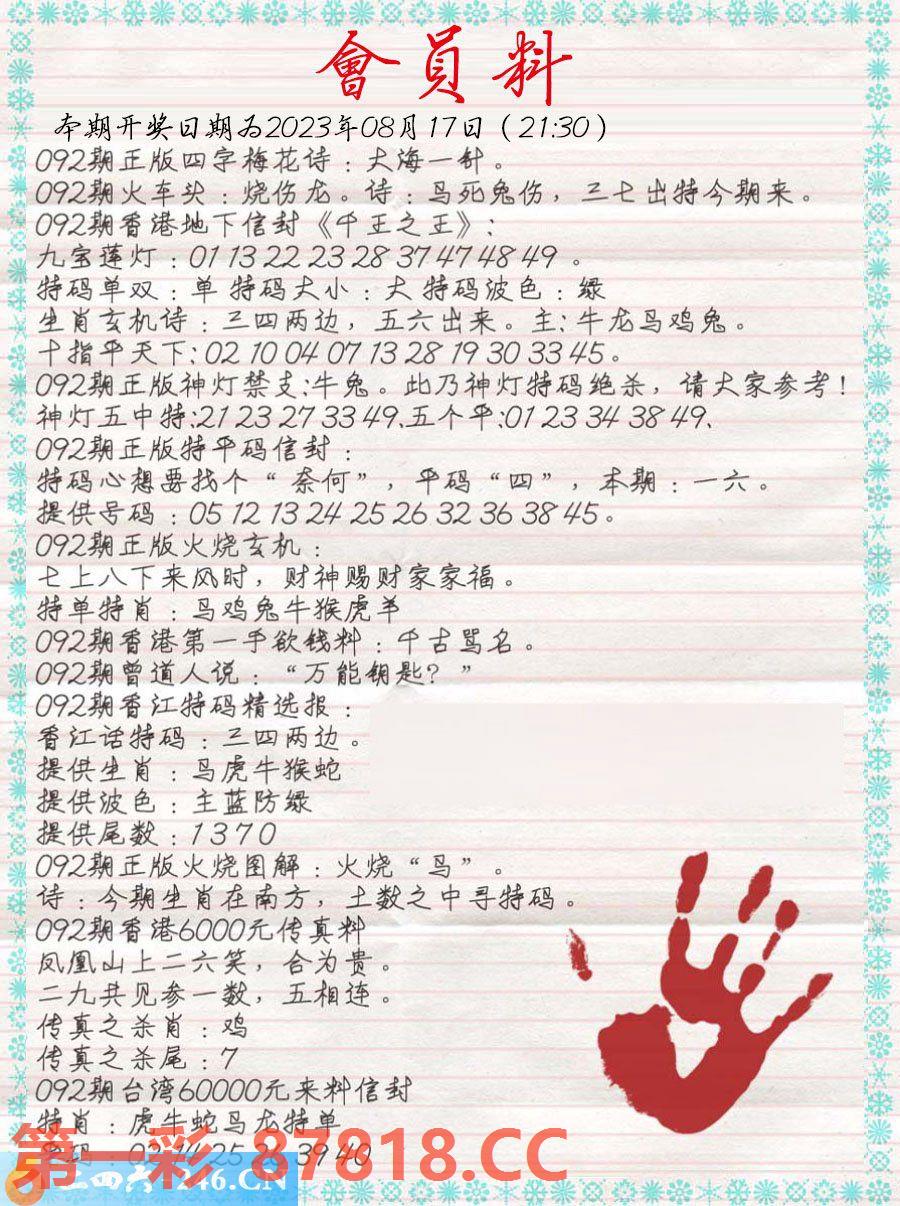 會員料
本期开奖日期为2023年08月17日（21:30）
092期正版四字梅花诗：大海一针。
092期火车头：烧伤龙。诗：鸟死兔伤，三七出特今期来。
092期香港地下信封《千王之王》：
九宝莲灯：01 13 22 23 28 37 47 48 49 。
特码单双：单 特码大小：大 特码波色：绿
生肖玄机诗：三四两边，五六出来。主：牛龙鸟鸡兔。
十指平天下：02 10 04 07 13 28 19 30 33 45。
092期正版神灯禁支:牛兔。此乃神灯特码绝杀，请大家参考！
神灯五中特:21 23 27 33 49.五个平:01 23 34 38 49.
092期正版特平码信封：
特码心想要找个“奈何”，平码“四”，本期：一六。
提供号码：05 12 13 24 25 26 32 36 38 45。
092期正版火烧玄机：
七上八下来风时，财神赐财家家福。
特单特肖：鸟鸡兔牛猴虎羊
092期香港第一手欲钱料：千古骂名。
092期曾道人说：“万能钥匙？”
092期香江特码精选报：
香江话特码：三四两边。
提供生肖：鸟虎牛猴蛇
提供波色：主蓝防绿
提供尾数：1 3 7 0
092期正版火烧图解：火烧“鸟”。
诗：今期生肖在南方，土数之中寻特码。
092期香港6000元传真料
凤凰山上二六笑，合为贵。
二九共见参一数，五相连。
传真之杀肖：鸡
传真之杀尾：7
092期台湾60000元来料信封
特肖：虎牛蛇鸟龙特单
25 39 40
第一彩 87818.CC
二四六 246.CN